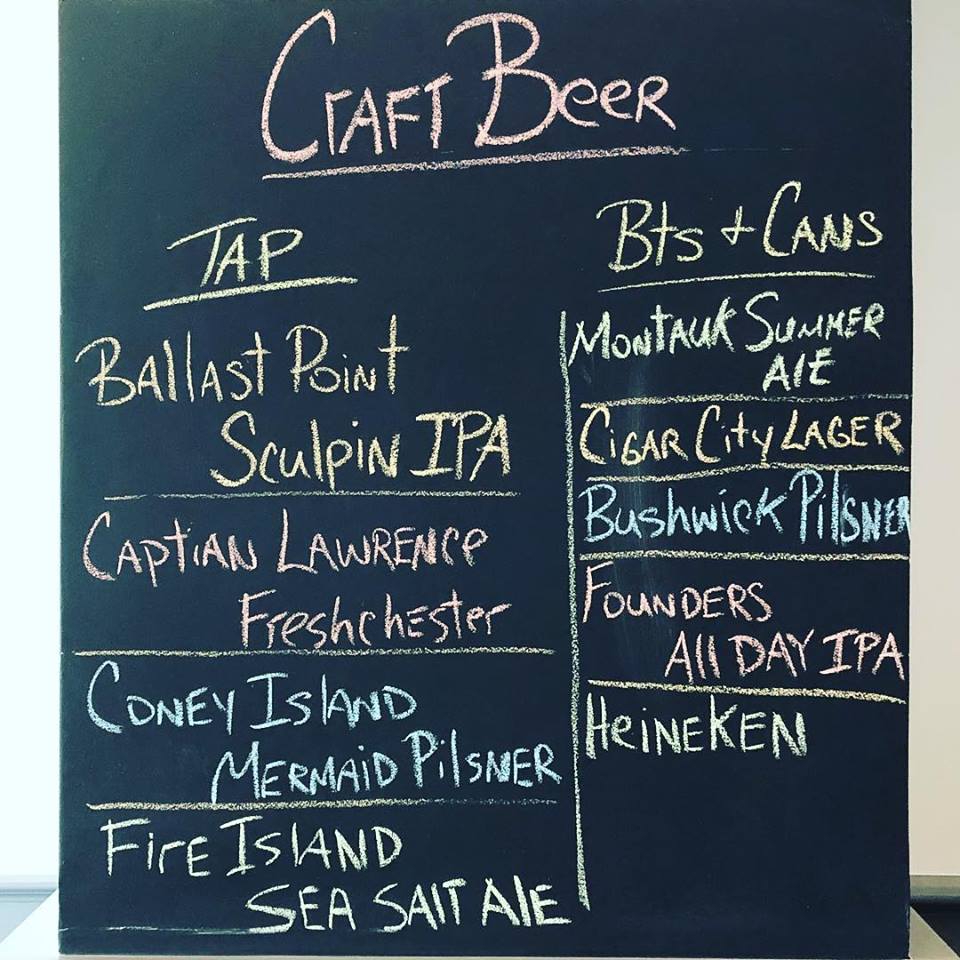 Craft Beer
TAP
Ballast Point
Sculpin IPA
Captian Lawrence
Freshchester
Coney Island
Mermaid Pilsner
Fire Island
Sea Salt Ale
Bts + Cans
Montauk Summer
Ale
Cigar City Lager
Bushwick Pilsner
Founders
All Day IPA
Heineken